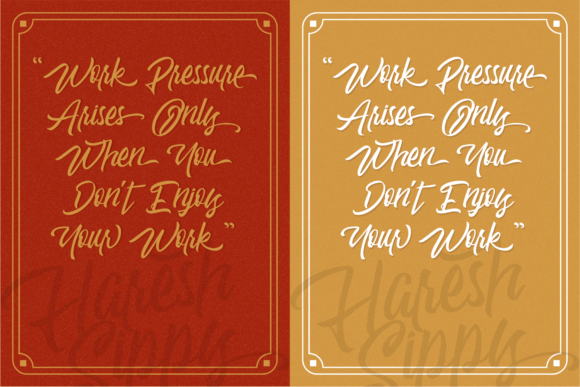 “Work Pressure
Arises Only
When You
Don't Enjoy
Your Work”
Haresh
Sippy
“Work Pressure
Arises Only
When You
Don't Enjoy
Your Work”
Haresh
Sippy